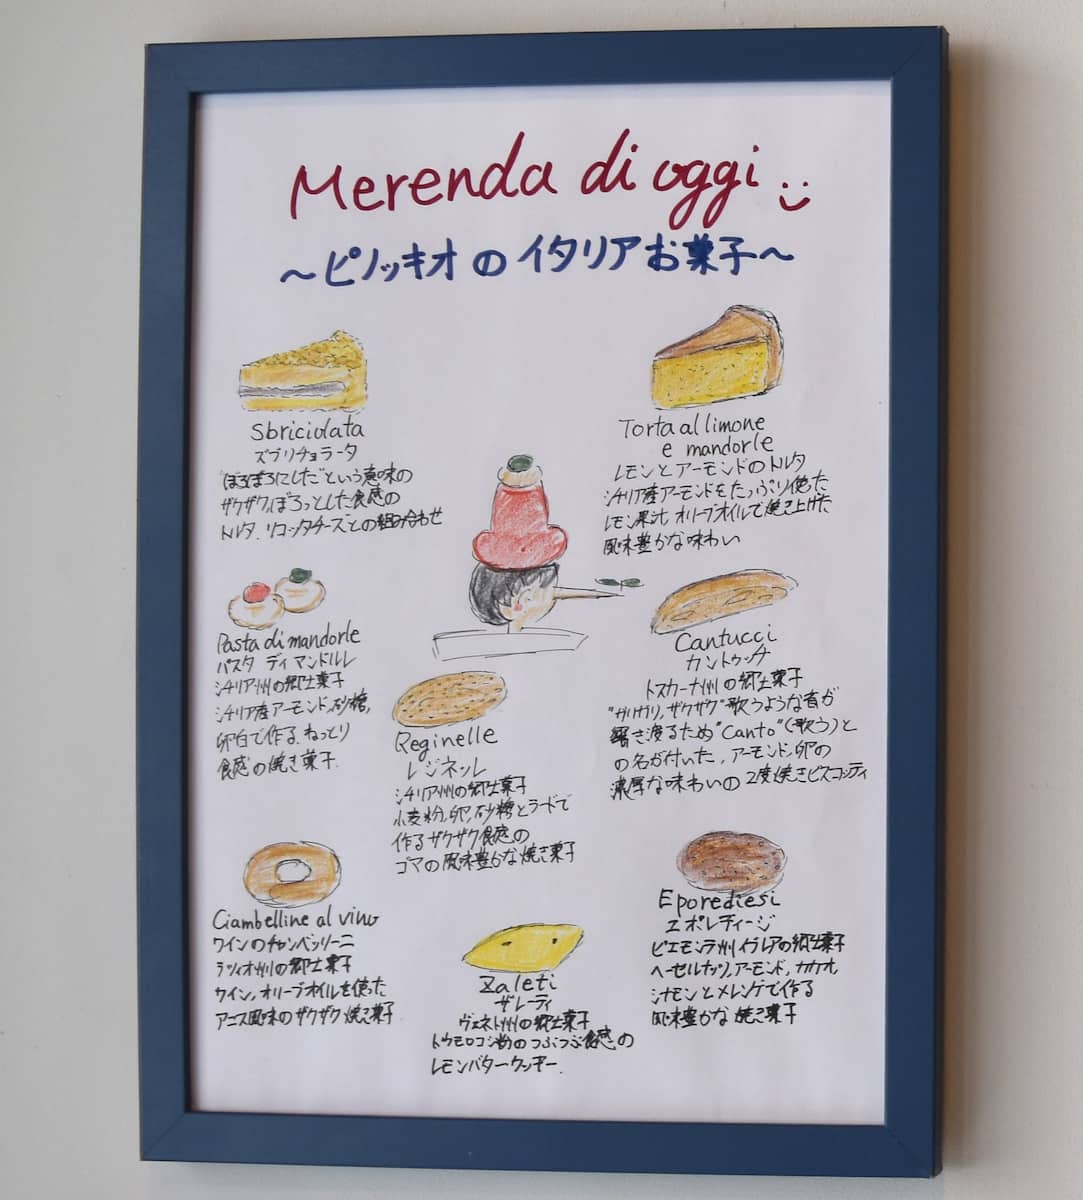 Merenda di oggi
～ピノッキオのイタリアお菓子～
Sbriciolata
ズブリチョラータ
"ぼろぼろにした"という意味の
ザクザク,ぼろっとした食感の
トルタ.リコッタチーズとの組み合わせ
Torta al limone
e mandorle
レモンとアーモンドのトルタ
シチリア産アーモンドをたっぷり使った
レモン果汁,オリーブオイルで焼き上げた
風味豊かな味わい
Pasta di mandorle
パスタ ディ マンドルレ
シチリア州の郷土菓子
シチリア産アーモンド,砂糖,
卵白で作る,ねっとり
食感の焼き菓子.
Cantucci
カントゥッチ
トスカーナ州の郷土菓子
"カリカリ,ザクザク"歌うような音が
響き渡るため"Canto"(歌う)と
の名が付いた,アーモンド,卵の
濃厚な味わいの2度焼きビスコッティ
Reginelle
レジネッレ
シチリア州の郷土菓子
小麦粉,卵,砂糖とラードで
作るザクザク食感の
ゴマの風味豊かな焼き菓子
Ciambelline al vino
ワインのチャンベッリーニ
ラツィオ州の郷土菓子
ワイン,オリーブオイルを使った
アニス風味のザクザク焼き菓子
Zaleti
ザレーティ
ヴェネト州の郷土菓子
トウモロコシ粉のつぶつぶ食感の
レモンバタークッキー.
Eporediesi
エポレディージ
ピエモンテ州イブレアの郷土菓子
ヘーゼルナッツ,アーモンド,カカオ,
シナモンとメレンゲで作る
風味豊かな焼き菓子